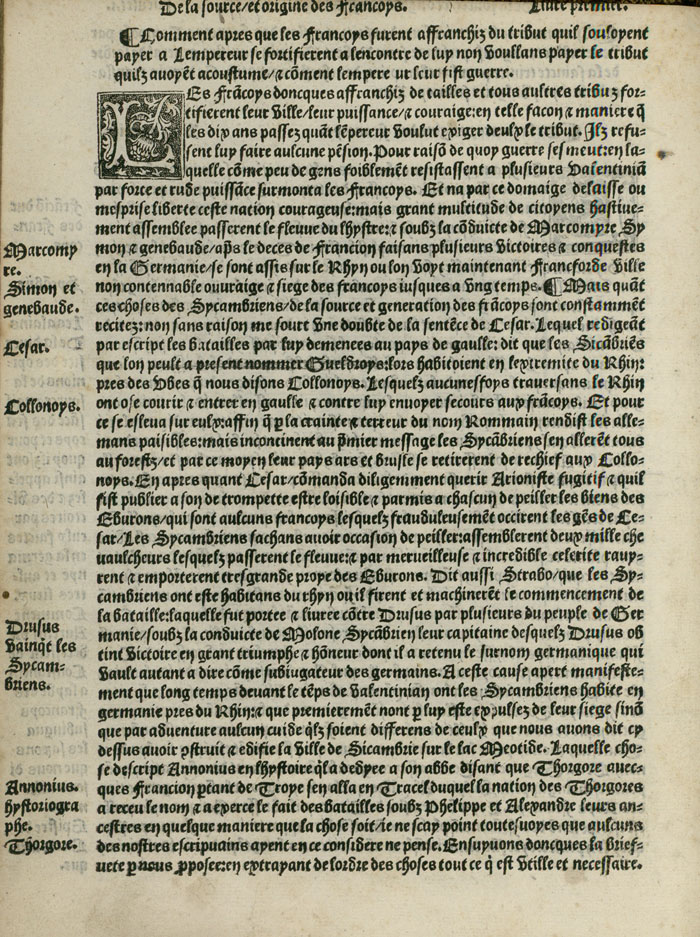 De la source/et origine des Francoys. Liure premier.
¶Comment apres que les Francoys furent affranchiz du tribut quil souloyent
payer a Lempereur se fortifierent a lencontre de luy non voullans payer le tribut
quilz avoyẽt acoustume/⁊ cõment lempere ur leur fist guerre.
LEs Frãcoys doncques affranchiz de tailles et tous aultres tribuz for-
tifierent leur ville/leur puissance/⁊ couraige:en telle facon ⁊ maniere q̃
les dix ans passez quãt lẽpereur voulut exiger deulx le tribut. Ilz refu-
sent luy faire aulcune pẽsion. Pour raisõ de quoy guerre ses meut:en la-
quelle cõme peu de gens foiblemẽt resistassent a plusieurs Valentiniã
par force et rude puissãce surmonta les Francoys. Et na par ce domaige delaisse ou
mesprise liberte ceste nation courageuse:mais grant multitude de citoyens hastiue-
ment assemblee passerent le fleuue du hystre:⁊ soubz la cõduicte de Marcomyre Sy
mon ⁊ genebaude/ap̃s le deces de Francion faisans plusieurs victoires ⁊ conquestes
en la Germanie/se sont assis sur le Rhyn ou lon voyt maintenant Francforde ville
non contennable ouuraige ⁊ siege des francoys iusques a vng temps. ¶Mais quãt
ces choses des Sycambriens/de la source et generation des frãcoys sont constammẽt
recitez:non sans raison me sourt vne doubte de la sentẽce de Cesar. Lequel redigeãt
par escript les batailles par luy demences au pays de gaulle: dit que les Sicãbriẽs
que lon peult a present nommer Gueldroys:lors habitoient en lextremite du Rhin:
pres des Vbes q̃ nous disons Collonoys. Lesquelz aucunesfoys trauersans le Rhin
ont ose courir ⁊ entrer en gaulle ⁊ contre luy enuoyer secours aux frãcoys. Et pour
ce se esleua sur eulx:affin q̃ ꝑ la crainte ⁊ terreur du nom Rommain rendist les alle-
mans paisibles:mais incontinent au p̃mier message les Sycãbriens sen allerẽt tous
au forestz/et par ce moyen leur pays ars et brusle se retirerent de rechief aux Collo-
noys. En apres quant Cesar/cõmanda diligemment querir Arioniste fugitif ⁊ quil
fist publier a son de trompette estre loisible ⁊ parmis a chascun de peiller les biens des
Eburons/qui sont aulcuns francoys lesquelz frauduleusemẽt occirent les gẽs de Ce-
sar/Les Sycambriens sachans auoir occasion de peiller:assemblerent deux mille che
uaulcheurs lesquelz passerent le fleuue:⁊ par merueilleuse ⁊ incredible celerite rauy-
rent ⁊ emporterent tresgrande proye des Eburons. Dit aussi Strabo/que les Sy-
cambriens ont este habitans du rhyn ou il firent et machinerẽt le commencement de
la bataille:laquelle fut portee ⁊ liuree cõtre Drusus par plusieurs du peuple de Ger
manie/soubz la conduicte de Molone Sycãbrien leur capitaine desquelz Drusus ob
tint victoire en grant triumphe ⁊ hõneur dont il a retenu le surnom germanique qui
vault autant a dire cõme subiugateur des germains. A ceste cause apert manifeste-
ment que long temps deuant le tẽps de Valentinian ont les Sycambriens habite en
germanie pres du Rhin:⁊ que premieremẽt nont ꝑ luy este expulsez de leur siege sinõ
que par aduenture aulcun cuide q̃lz soient differens de ceulx que nous auons dit cy
dessus auoir ↄstruit ⁊ edifie la ville de Sicambrie sur le lac Meotide. Laquelle cho-
se descript Annonius en lhystoire q̃l a dedyee a son abbe disant que Thorgore auec-
ques Francion ꝑtant de Troye sen alla en Trace/duquel la nation des Thorgores
a receu le nom ⁊ a exerce le fait des batailles soubz Phelippe et Alexandre leurs an-
cestres en quelque maniere que la chose soit/ie ne scay point toutesuoyes que aulcuns
des nostres escripuains ayent en ce considere ne pense. Ensuyuons doncques la brief-
uete ꝑ nous ꝓposee:en extrayant de lordre des choses tout ce q̃ est vtille et necessaire.
Marcomy
re.
Simon et
genebaude.
Cesar.
Collonoys.
Drusus
vainq̃t les
Sycam-
briens.
Annonius.
hystoriogra
phe.
Thorgore.